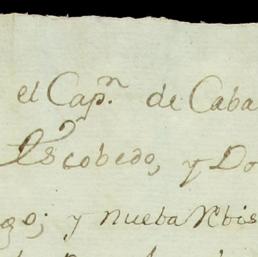 el Cap.n de Caba
Escobedo, y Do
go; y nueba